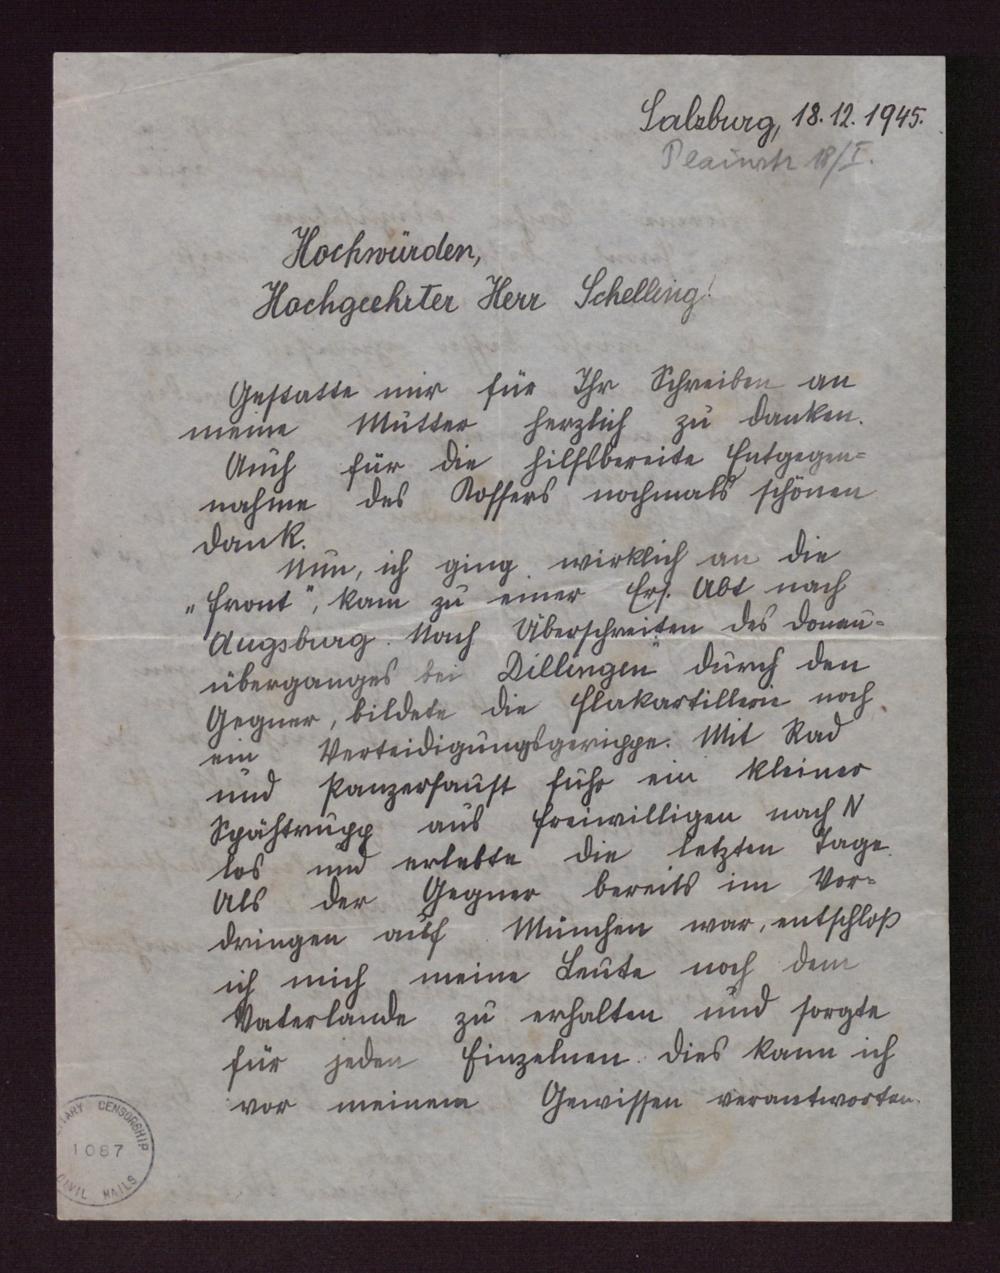 Salzburg, 18.12.1945.
Plainstr 18/I.
Hochwürden,
Hochgeehrter Herr Schelling!
Gestatte mir für Ihr Schreiben an
meine Mutter herzlich zu danken.
Auch für die hilfsbereite Entgegen=
nahme des Koffers nochmals schönen
Dank.
Nun, ich ging wirklich an die
"Front", kam zu einer Ers. Abt nach
Augsburg. Nach Überschreiten des Donau-
überganges bei Dillingen durch den
Gegner, bildete die Flakartillerie noch
ein Verteidigungsgerippe. Mit Rad
und Panzerfaust fuhr ein kleiner
Spähtrupp aus Freiwilligen nach N
los und erlebte die letzten Tage.
Als der Gegner bereits im Vor=
dringen auf München war, entschloß
ich mich meine Leute noch dem
Vaterlande zu erhalten und sorgte
für jeden Einzelnen. Dies kann ich
vor meinem Gewissen verantworten.
TARY CENSORSHIP
1087
CIVIL MAILS